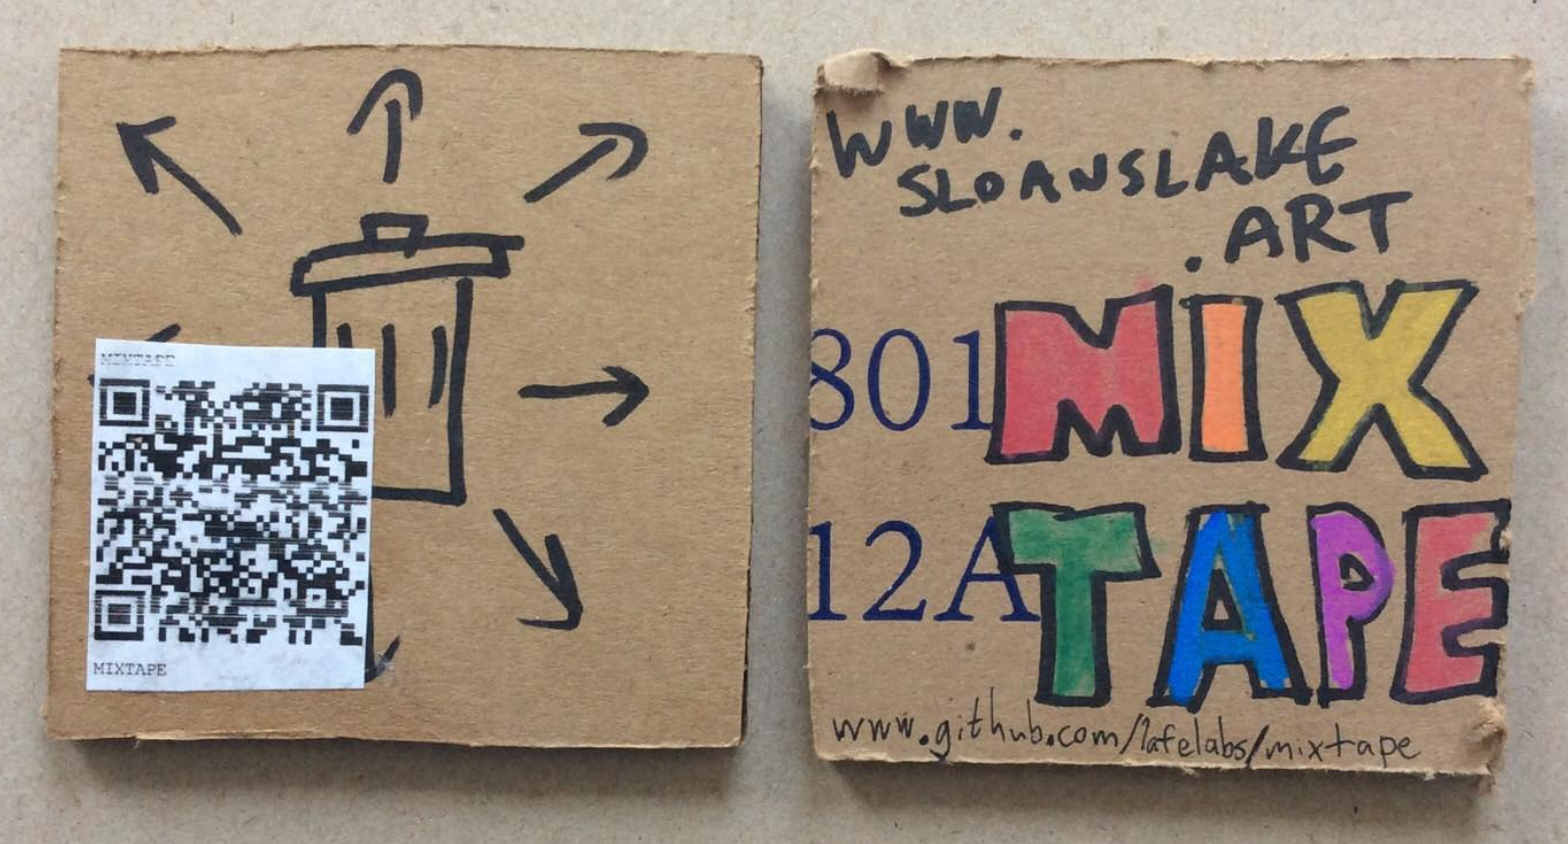 MIXTAPE
MIXTAPE
WWW.
SLOANSLAKE
.ART
801
MIX
12A
TAPE
www.github.com/lafelabs/mixtape